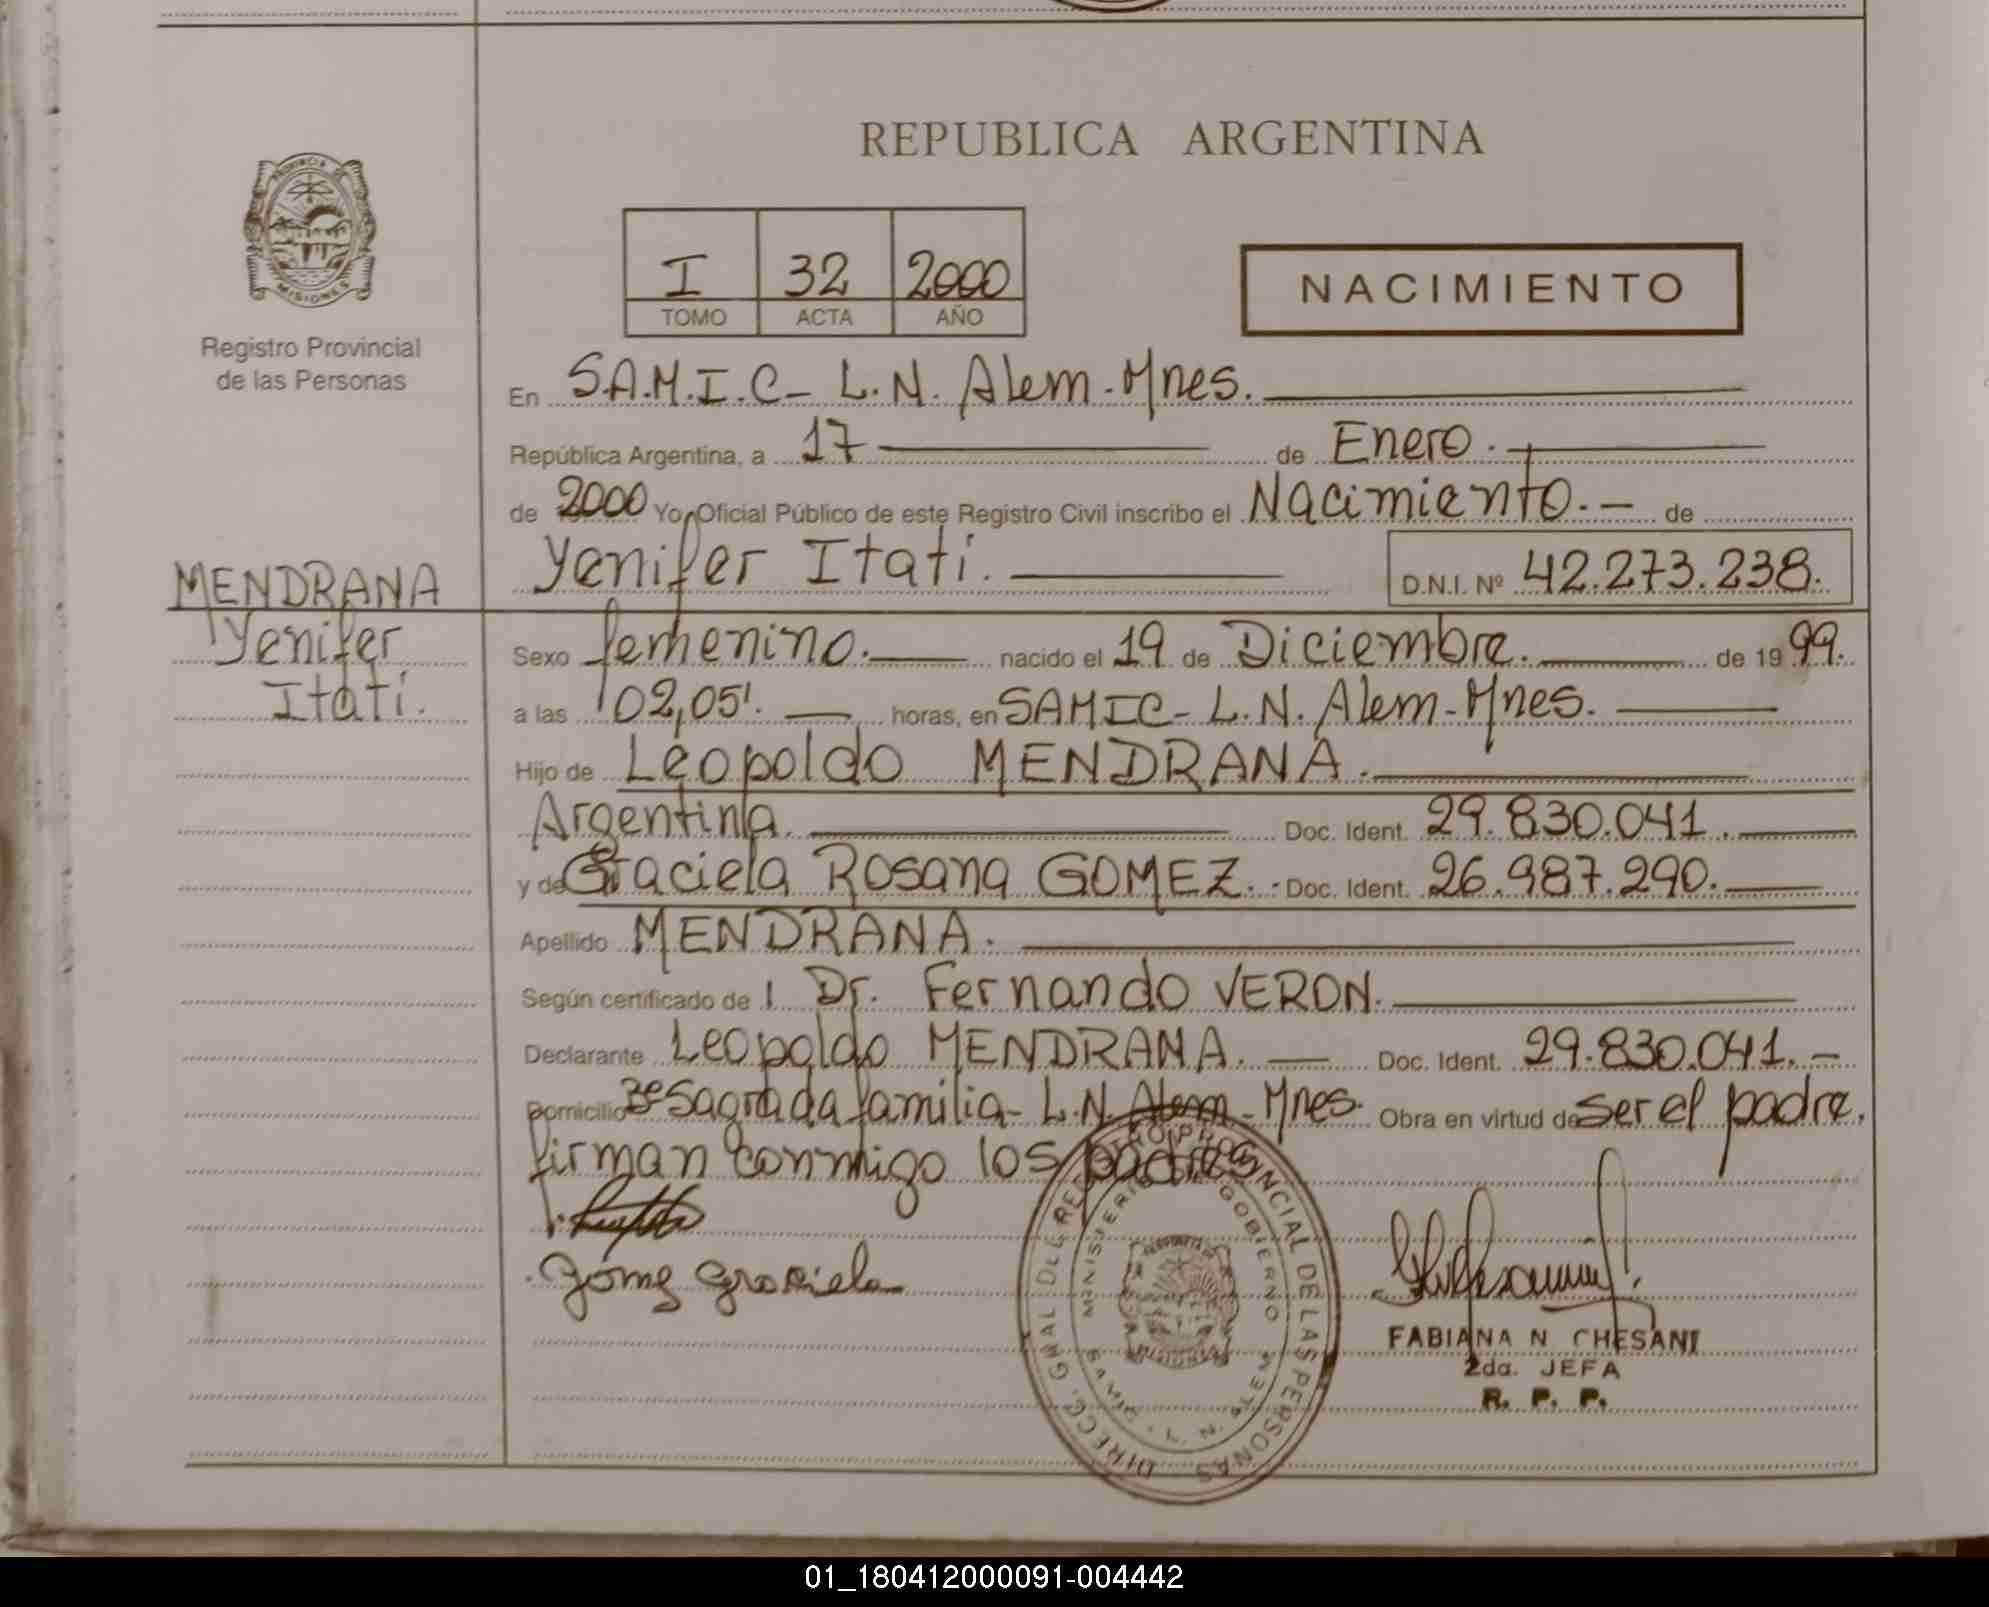 REPUBLICA ARGENTINA
PROVINCIA DE MISIONES
Registro Provincial
de las Personas
I 32 2000
TOMO ACTA AÑO
NACIMIENTO
En S.A.M.I.C- L.N. Alem-Mnes.
República Argentina, a 17 de Enero.
de 2000 Yo, Oficial Público de este Registro Civil inscribo el Nacimiento.- de
Yenifer Itatí. D.N.I. Nº 42.273.238.
MENDRANA
Yenifer
Itatí.
Sexo femenino. nacido el 19 de Diciembre. de 1999.
a las 02,05'. horas, en SAMIC- L.N. Alem-Mnes.
Hijo de Leopoldo MENDRANA.
Argentina. Doc. Ident. 29.830.041.
y de Graciela Rosana GOMEZ.- Doc. Ident. 26.987.290.
Apellido MENDRANA.
Según certificado de l Dr. Fernando VERON.
Declarante Leopoldo MENDRANA. Doc. Ident. 29.830.041.-
Domicilio Bº Sagrada familia- L.N. Alem-Mnes. Obra en virtud de ser el padre,
firman conmigo los padres
Gomez Graciela
DIRECC. GRAL DEL REGISTRO PROVINCIAL DE LAS PERSONAS
MINISTERIO DE GOBIERNO
SAMIC - L. N. ALEM
FABIANA N CHESANI
2da. JEFA
R. P. P.
01_180412000091-004442